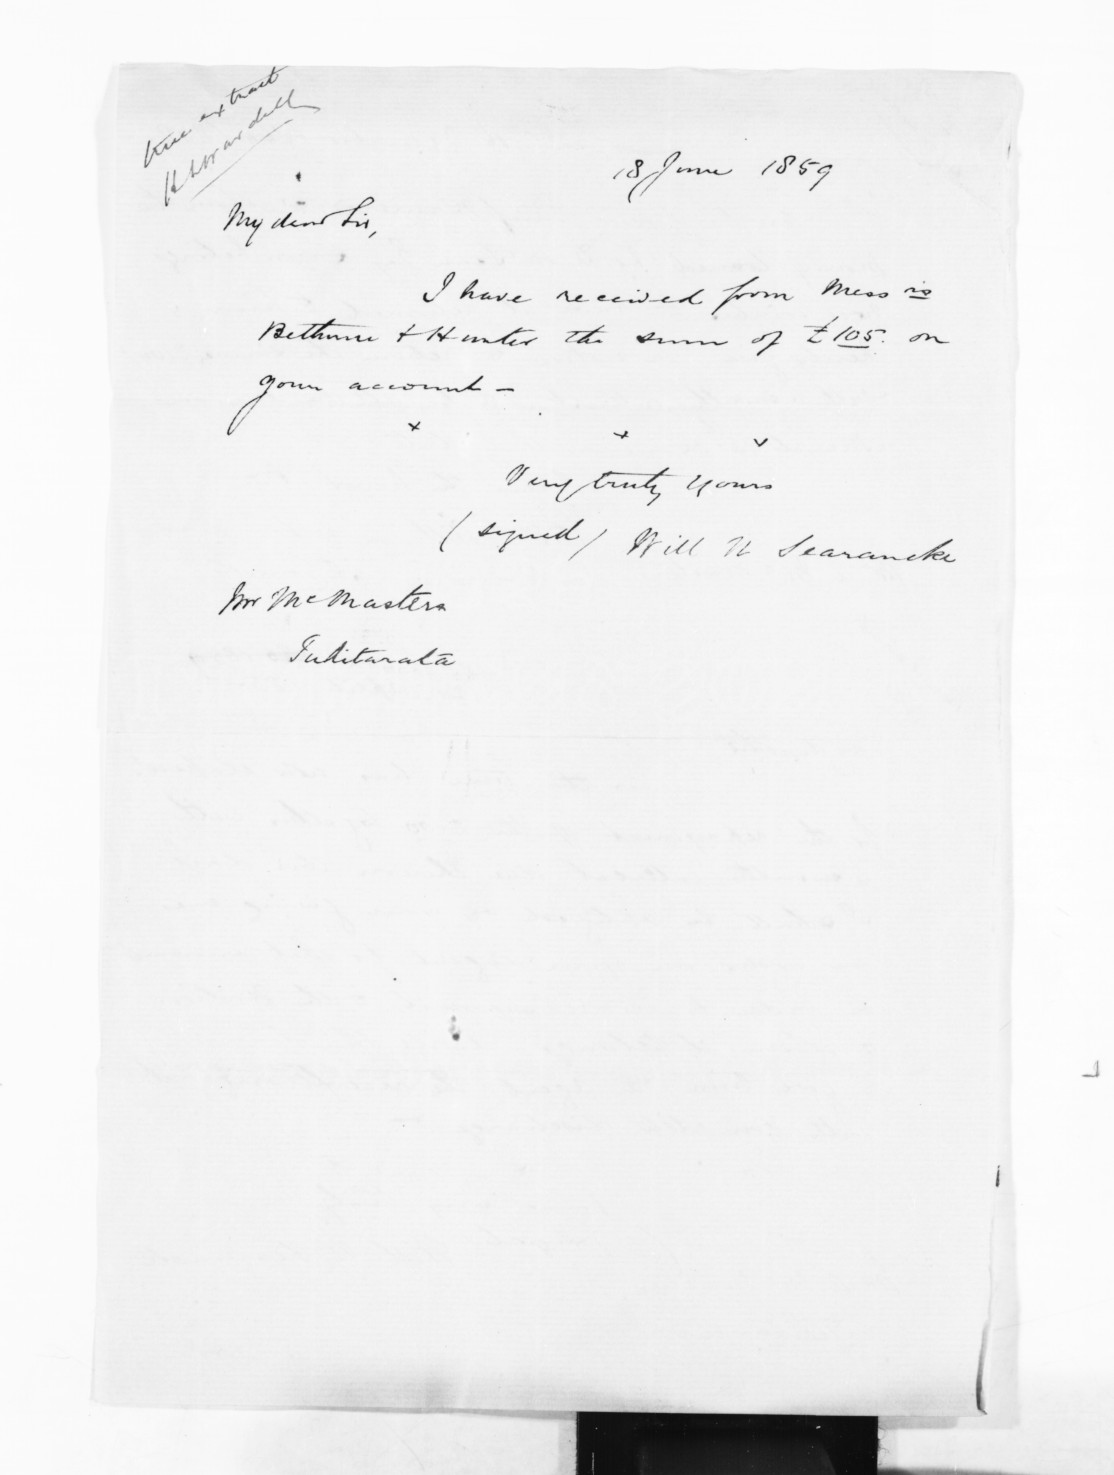 true extract
H S Wardell
18 June 1859
My dear Sir,
I have received from Messrs
Bethune & Hunter the sum of £105. on
your account –
x x v
Very truly yours
(signed) Will N Searancke
Mr McMasters
Tukitarata